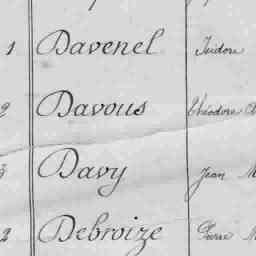 1 Davenel Isidore
2 Davous Théodore
3 Davy Jean M
2 Debroize Pierre M